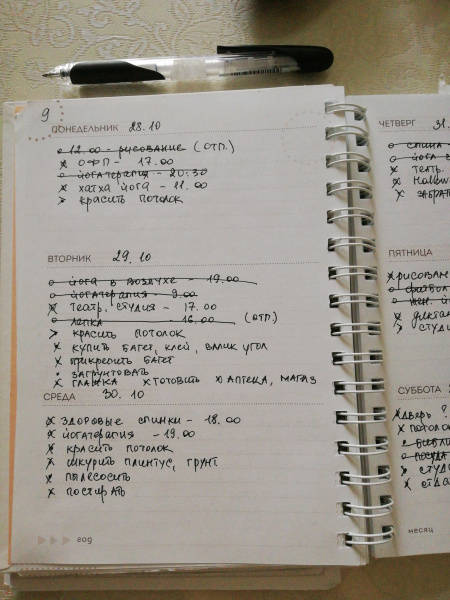 9
ПОНЕДЕЛЬНИК 28.10
12.00 - рисование (отп.)
ОФП - 17.00
йогатерапия - 20.30
хатха йога - 11.00
красить потолок
ВТОРНИК 29.10
йога в воздухе - 19.00
йогатерапия - 9.00
театр. студия - 17.00
лепка - 16.00 (отп.)
красить потолок
купить багет, клей, валик угол
прикрепить багет
загрунтовать
глажка готовить аптека, магаз
СРЕДА 30.10
здоровые спинки - 18.00
йогатерапия - 19.00
красить потолок
шкурить плинтус, грунт
пылесосить
постирать
год
ЧЕТВЕРГ 31.
спина
йога
театр.
ПЯТНИЦА
рисован
СУББОТА
дверь?
потоло
посуда
студ
месяц